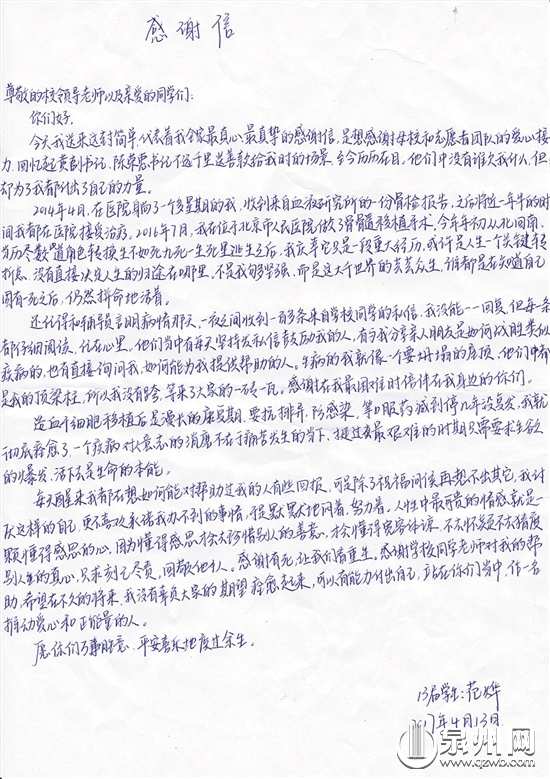 感谢信
尊敬的校领导老师以及亲爱的同学们:
你们好.
今天我送来这封简单,代表着我全家最真心最真挚的感谢信,是想感谢母校和志愿者团队的爱心接
力.回忆起黄副书记、陈 书记不远千里送善款给我时的场景,至今历历在目,他们中没有谁欠我什么,但
却为了我都付出了自己的力量.
2014年4月,在医院躺了一个多星期的我,收到来自血液研究所的一份骨检报告,之后将近一年半的时
间我都在医院接受治疗,2016年7月,我在位于北京市人民医院做了骨髓移植手术.今年年初从北回南,
 历尽数 道角色转换,生不如死九死一生死里逃生之后,我庆幸它只是一段重大经历,或许是人生一个关键转
折点,没有直接决定人生的归途在哪里,不是我够坚强,而是这大千世界的芸芸众生,谁都是在知道自己
固有一死之后,仍然拼命地活着.
还记得和辅导员明病情那天,一夜之间收到一百多条来自学校同学的私信,我没能一一回复,但每一条
都仔细阅读,记在心里,他们当中有每天坚持发私信鼓励我的人,有与我分享亲人朋友是如何战胜类似
疾病的,也有直接询问我,如何能为我提供帮助的人.生病的我就像一个要坍塌的屋顶,他们中都
是我的顶梁柱,所以我没有垮,等来了大家的一砖一瓦,感谢在我最困难时陪伴在我身边的你们.
造血干细胞移植后是漫长的康复期,要抗排异,防感染,等口服药减到停几年没复发,我就
彻底痊愈了.一个疾病对人意志的消磨不在于痛苦发生的当下,挺过去最艰难的时期只需要求生欲
的爆发,活下去是生命的本能.
每天醒来我都在想如何能对帮助过我的人有些回报,可是除了祝福问候再想不出其它,我讨
厌这样的自己,更不喜欢承诺我办不到的事情,但是默默地问着,努力着.人性中最可贵的情感就是一
颗懂得感恩的心,因为懂得感恩才会去珍惜别人的善意,才会懂得宽容体谅,不去怀疑不去猜度
别人的真心,只求刻己尽责,回敬他人.感谢有你,让我们看重生.感谢学校同学老师对我的帮
助,希望在不久的将来,我没有辜负大家的期望痊愈起来,可以有能力付出自己,站在你们当中,作一名
推动爱心和正能量的人.
愿你们万事胜意、平安喜乐地度过余生.
13届学生:范烨
2017年4月13日
泉州网
www.qzwb.com